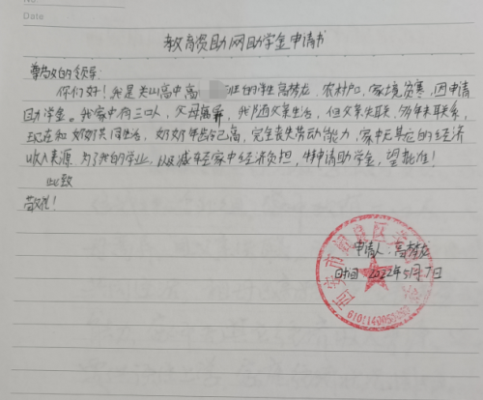 No.
Date
教育资助网助学金申请书
尊敬的领导：
你们好！我是关山高中高 班的学生高梦龙，农村户口，家境贫寒，因申请
助学金。我家中有三口人，父母离异，我随父亲生活，但父亲失联，多年未联系，
现在和奶奶共同生活，奶奶年龄已高，完全丧失劳动能力，家中无其它的经济
收入来源。为了我的学业，以及减轻家中经济负担，特申请助学金，望批准！
此致
敬礼！
申请人：高梦
时间：2022年5月7日
西安市阎良区